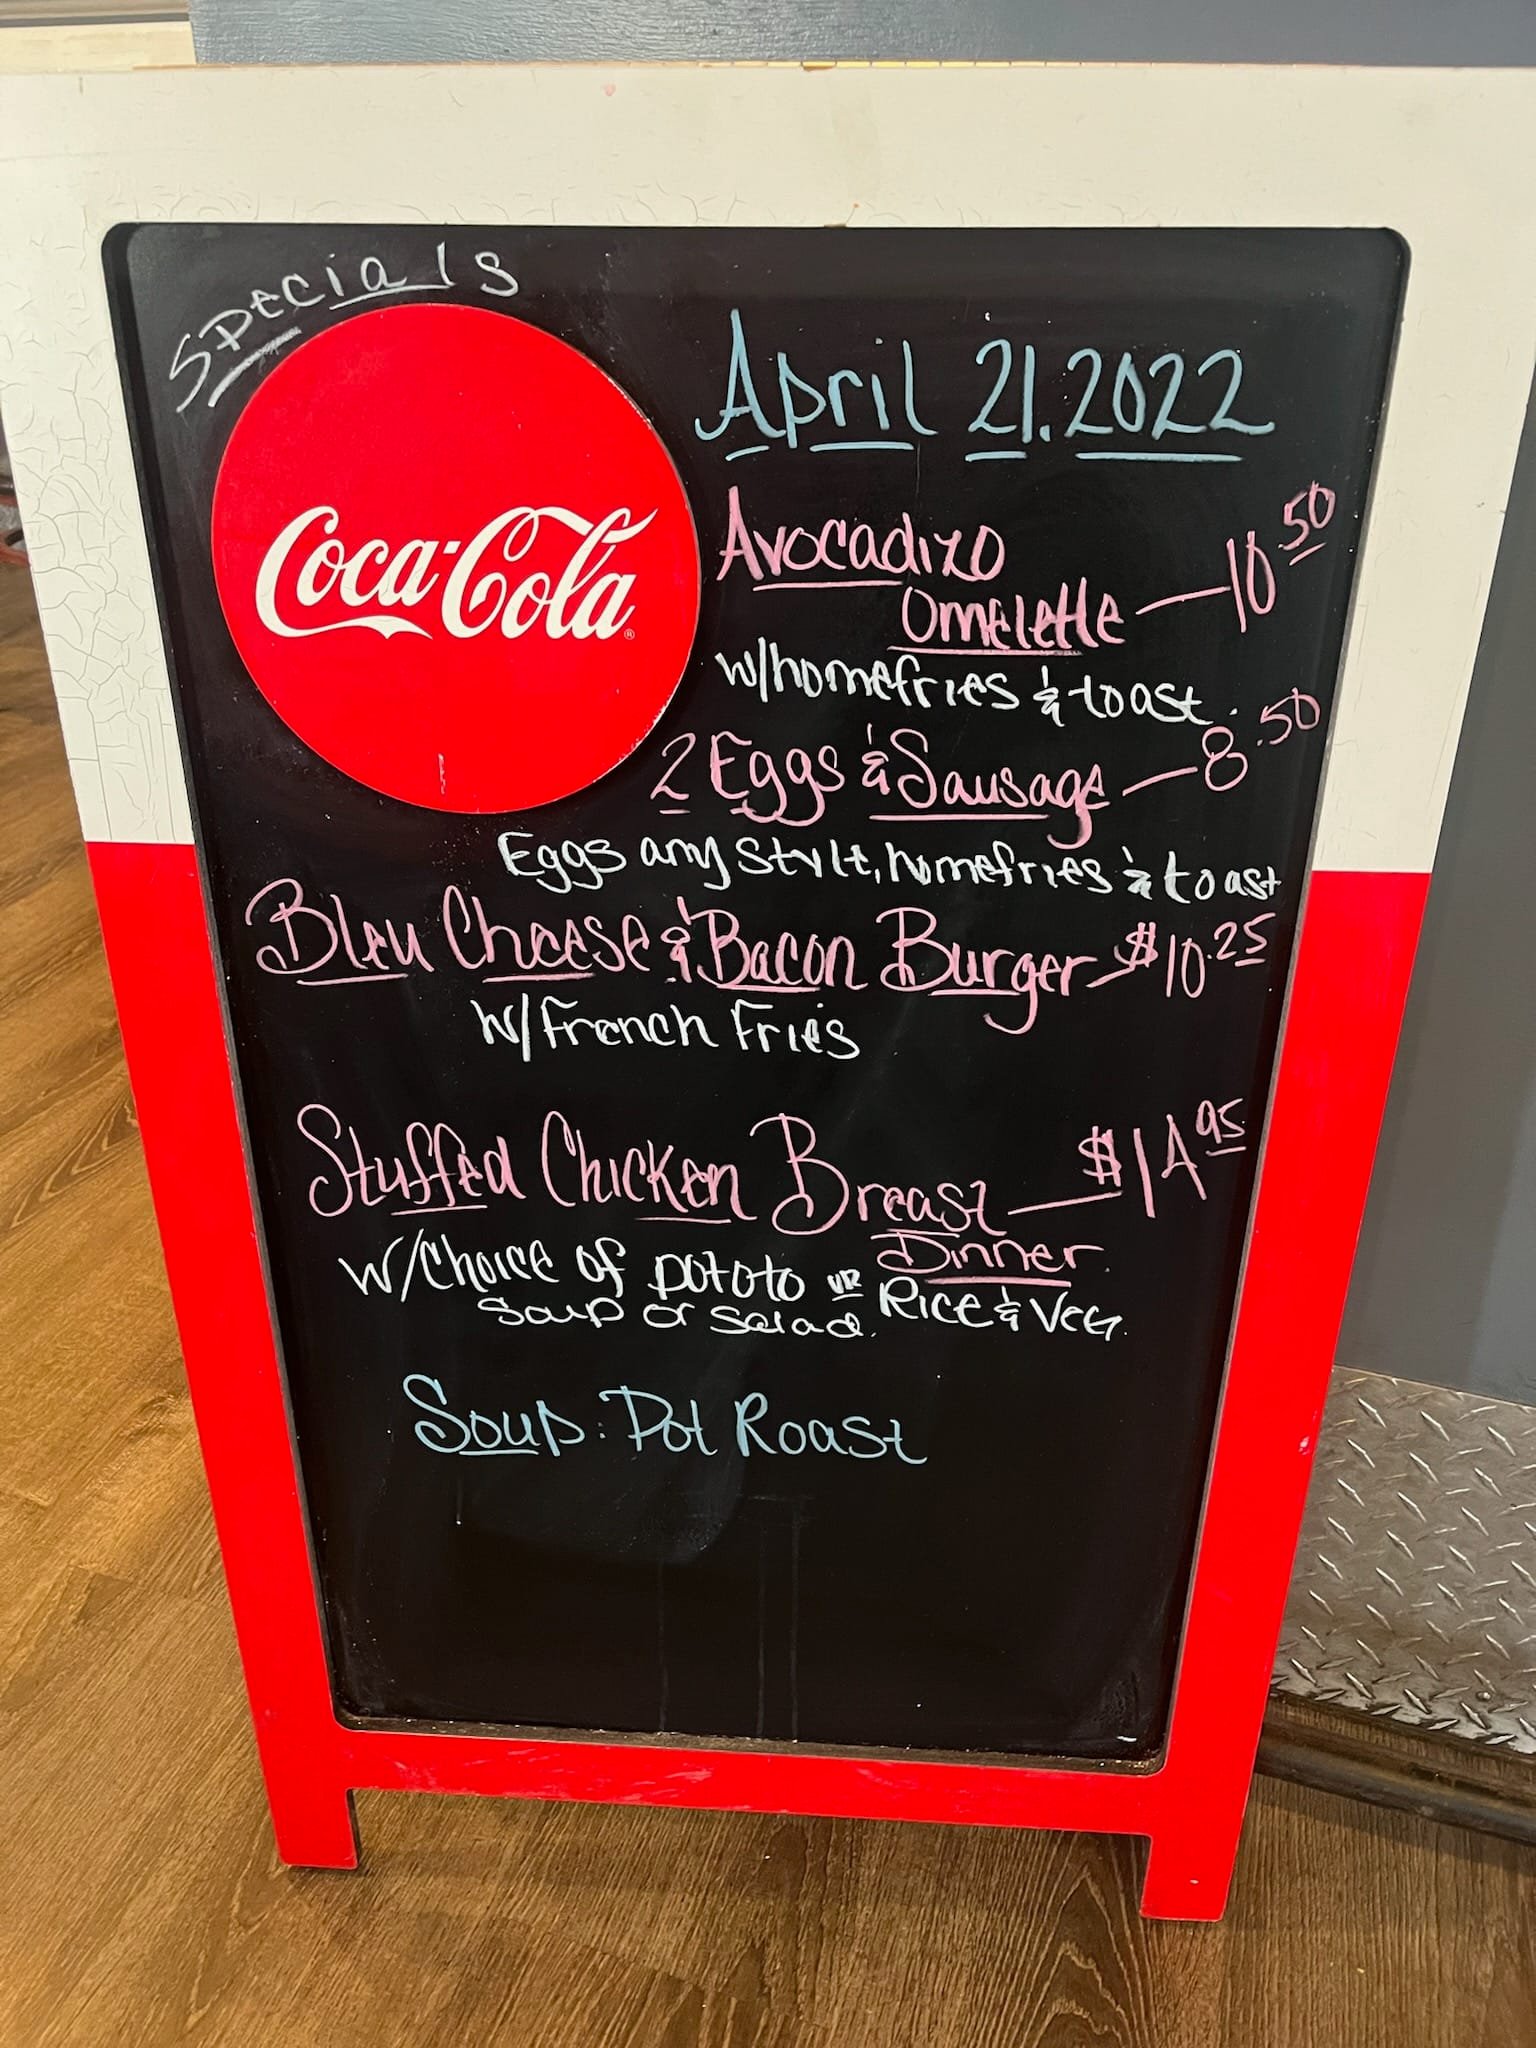 Specials
Coca-Cola®
April 21. 2022
Avocadizo
Omelette — 10.50
w/homefries & toast.
2 Eggs & Sausage — 8.50
Eggs any style, homefries & toast
Bleu Cheese & Bacon Burger - $10.25
w/French Fries
Stuffed Chicken Breast — $14.95
Dinner.
w/Choice of pototo or Rice & Veg.
Soup or Salad.
Soup: Pot Roast